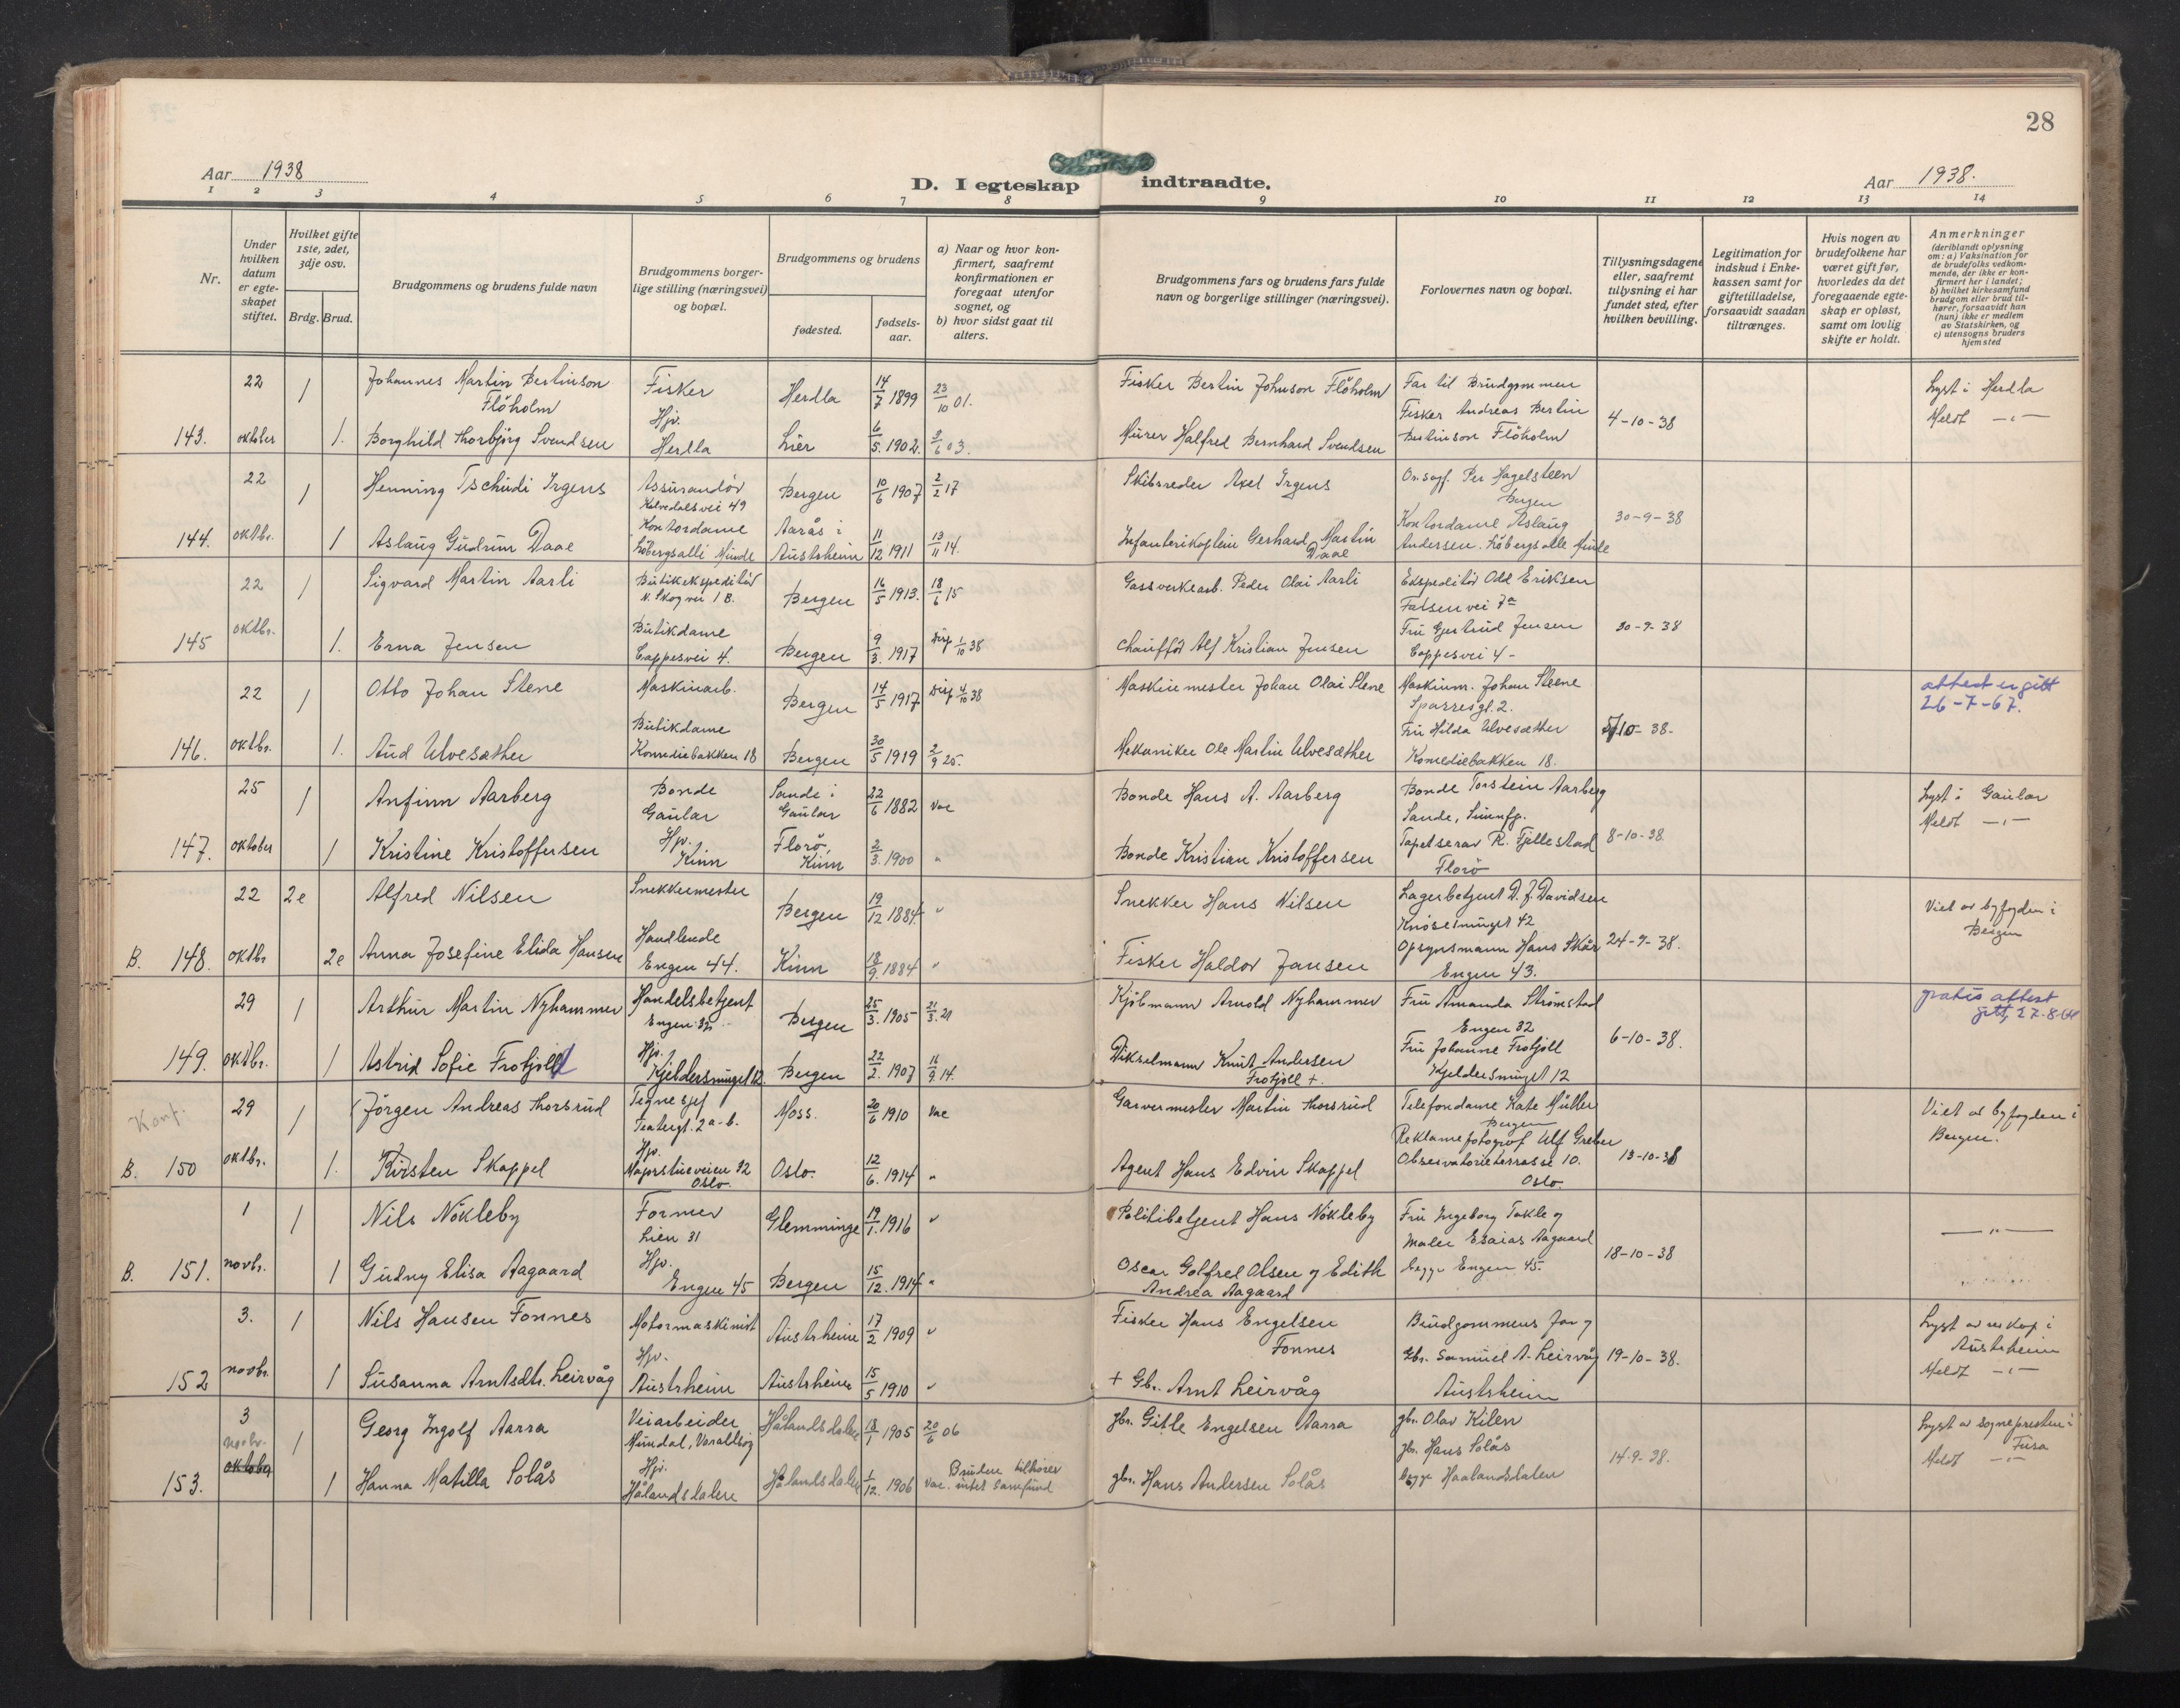 28
Aar 1938
D. I egteskap indtraadte.
Aar 1938.
1 2 3 4 5 6 7 8 9 10 11 12 13 14
Nr.
Under hvilken datum er egteskapet stiftet.
Hvilket gifte 1ste, 2det, 3dje osv.
Brdg. Brud.
Brudgommens og brudens fulde navn
Brudgommens borgerlige stilling (næringsvei) og bopæl.
Brudgommens og brudens
fødested.
fødselsaar.
a) Naar og hvor konfirmert, saafremt konfirmationen er foregaat utenfor sognet, og
b) hvor sidst gaat til alters.
Brudgommens fars og brudens fars fulde navn og borgerlige stillinger (næringsvei).
Forlovernes navn og bopæl.
Tillysningsdagene eller, saafremt tillysning ei har fundet sted, efter hvilken bevilling.
Legitimation for indskud i Enkekassen samt for giftetilladelse, forsaavidt saadan tiltrænges.
Hvis nogen av brudefolkene har været gift før, hvorledes da det foregaaende egteskap er opløst, samt om lovlig skifte er holdt.
Anmerkninger
(deriblandt oplysning om: a) Vaksination for de brudefolks vedkommende, der ikke er konfirmert her i landet;
b) hvilket kirkesamfund brudgom eller brud tilhører, forsaavidt han (hun) ikke er medlem av Statskirken, og
c) utensogns bruders hjemsted
22 1 Johannes Martin Bertinson Flöholm Fisker Herdla 14/7 1899 23/10 01. Fisker Bertin Johnson Flöholm Far til Brudgommen Lyst i Herdla
143. oktober 1. Borghild Thorbjörg Svendsen Hjv. Herdla Lier 6/5. 1902. 9/6 03. Murer Halfred Bernhard Svendsen Fisker Andreas Bertin Bertinson Flöholm 4-10-38 Meldt -"-
22 1 Henning Tschudi Irgens Assurandör Kalvedalsvei 49 Bergen 10/6 1907 2/2 17 Skibsreder Axel Irgens Per Hagelsteen Bergen
144. oktbr. 1 Aslaug Gudrun Daae Kontordame Löbergsalli Minde Aarås i Austrheim 11/12 1911 13/11 14. Infanterikaptein Gerhard Martin Daae Kontordame Aslaug Andersen. Löbergsalle Minde 30-9-38
22 1 Sigvard Martin Aarli Butikekspeditör N. Skogvei 1 B. Bergen 16/5 1913. 18/6 15 Gassverksarb. Peder Olai Aarli Ekspeditör Odd Eriksen Falsensvei 7a
145 oktbr. 1. Erna Jensen Butikdame Cappesvei 4. Bergen 9/3. 1917 Disp 1/10 38 Chaufför Alf Kristian Jensen Fru Gjertrud Jensen Cappesvei 4- 30-9-38
22 1 Otto Johan Stene Maskinarb. Bergen 14/5 1917 Disp 4/10 38 Maskinmester Johan Olai Stene Maskinm. Johan Steene Sparresgt. 2. attest er gitt 26-7-67.
146. oktbr. 1. Aud Ulvesæther Butikdame Komediebakken 18 Bergen 30/5 1919 2/9 25. Mekaniker Ole Martin Ulvesæther Fru Hilda Ulvesæther Komediebakken 18. 5/10-38.
25 1 Anfinn Aarberg Bonde Gaular Sande i Gaular 22/6 1882 vac Bonde Hans A. Aarberg Bonde Torstein Aarberg Sande, Sunnfj. Lyst i Gaular
147. oktober 1 Kristine Kristoffersen Hjv. Kinn Florö, Kinn 2/3. 1900 " Bonde Kristian Kristoffersen Tapetserar R. Fjellestad Florö 8-10-38. Meldt -"-
22 2e Alfred Nilsen Snekkermester Bergen 19/12 1884 " Snekker Hans Nilsen Lagerbetjent D. J. Davidsen Knösesmuget 42 Viet av byfogden i Bergen
B. 148. oktbr 2e Anna Josefine Elida Hansen Handlende Engen 44. Kinn 18/9. 1884 " Fisker Haldor Jansen Opsynsmann Hans Skår Engen 43. 24-9-38.
29 1 Arthur Martin Nyhammer Handelsbetjent Engen 32 Bergen 25/3. 1905 21/3. 21 Kjöbmann Arnold Nyhammer Fru Amanda Strömstad Engen 32 gratis attest gitt, 27.8.64
149. oktbr. 1 Astrid Sofie Frotjold Hjv. Kjeldersmuget 12. Bergen 22/2. 1907 16/9. 14. Dikselmann Knut Andersen Frotjoll +. Fru Johanne Frotjoll Kjeldersmuget 12 6-10-38.
Konf. 29 1 Jörgen Andreas Thorsrud Tegnesjef Teatergt. 2 a-b. Moss. 20/6 1910 vac Garvermester Martin Thorsrud Telefondame Kate Müller Bergen Viet av byfogden i Bergen.
B. 150 oktbr. 1. Kirsten Skappel Hjv. Majorstueveien 32 Oslo. Oslo. 12/6. 1914 " Agent Hans Edvin Skappel Reklamefotograf Ulf Greber Observatorieterrasse 10. Oslo. 13-10-38
1 1 Nils Nökleby Former Lien 31 Glemminge 19/1. 1916 " Politibetjent Hans Nökleby Fru Ingeborg Takle og -"-
B. 151. novbr. 1 Gudny Elisa Aagaard Hjv. Engen 45 Bergen 15/12. 1914 " Oscar Golfred Olsen og Edith Andrea Aagaard Maler Esaias Aagaard begge Engen 45. 18-10-38
3. 1 Nils Hansen Fonnes Motormaskinist Austrheim 17/2 1909 " Fisker Hans Engelsen Fonnes Brudgommens far og Lyst av res. kap i Austrheim
152 novbr. 1 Susanna Arntsdtr. Leirvåg Hjv. Austrheim Austrheim 15/5 1910 " + Gbr. Arnt Leirvåg Gbr. Samuel A. Leirvåg Austrheim 19-10-38. Meldt -"-
3 1 Georg Ingolf Aarra Veiarbeider Mundal, Varaldsöy Hålandsdalen 18/1 1905 20/6 06 gbr. Gitle Engelsen Aarra gbr. Olav Kilen Lyst av sognepresten i Fusa
153. novbr. oktober 1 Hanna Matilla Solås Hjv. Hålandsdalen Hålandsdalen 1/12. 1906 vac. Bruden tilhörer intet samfund gbr. Hans Andersen Solås gbr. Hans Solås begge Haalandsdalen 14-9-38. Meldt -"-